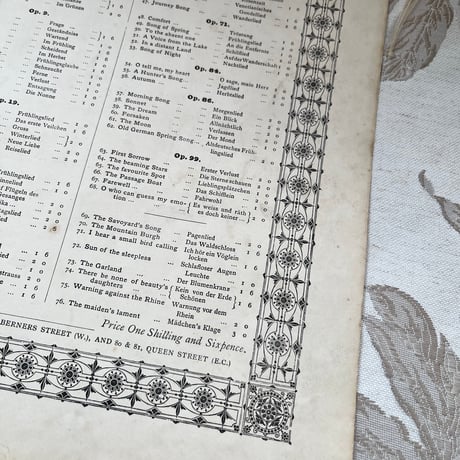 im Grünen
Op. 9.
Frage
Geständniss
Wartend
Im Frühling
Scheidend
Im Herbst
Frühlingsglaube
Sehnsucht
Ferne
Verlust
Entsagung
Die Nonne
Op. 19.
Frühlingslied
Das erste Veilchen
Gruss
Winterlied
Neue Liebe
Reiselied
Flügeln des
Gesanges
47. Journey Song
Venetianisches
Gondellied
Wanderlied
Op. 71.
48. Comfort ... Tröstung
49. Song of Spring ... Frühlingslied
50. To the absent one ... An die Entfernte
51. A Voice from the Lake
52. In a distant Land
53. Song of Night ... Nachtlied
Op. 84.
54. O tell me, my heart
55. A Hunter's Song ... Jagdlied
56. Autumn ... Herbstlied
Op. 86.
57. Morning Song ... Morgenlied
58. Sonnet ... Ein Blick
59. The Dream ... Allnächtlich
60. Forsaken ... Verlassen
61. The Moon ... Der Mond
62. Old German Spring Song ... Altdeutsches Früh-
lingslied
Op. 99.
63. First Sorrow ... Erster Verlust
64. The beaming Stars ... Die Sterne schauen
65. The favourite Spot ... Lieblingsplätzchen
66. The Passage Boat ... Das Schifflein
67. Farewell ... Fahrwohl
68. O who can guess my emotion?
Es weiss und räth
es doch keiner
69. The Savoyard's Song ... Pagenlied 2 0
70. The Mountain Burgh ... Das Waldschloss 2 0
71. I hear a small bird calling Ich hör ein Vöglein
locken 1 6
72. Sun of the sleepless ... Schlafloser Augen
Leuchte 1 6
73. The Garland ... Der Blumenkranz 1 6
74. There be none of beauty's daughters Kein von der Erde Schönen 1 6
75. Warning against the Rhine Warnung vor dem
Rhein 2 0
76. The maiden's lament ... Mädchen's Klage 3 0
Price One Shilling and Sixpence.
BERNERS STREET (W.), AND 80 & 81, QUEEN STREET (E.C.)